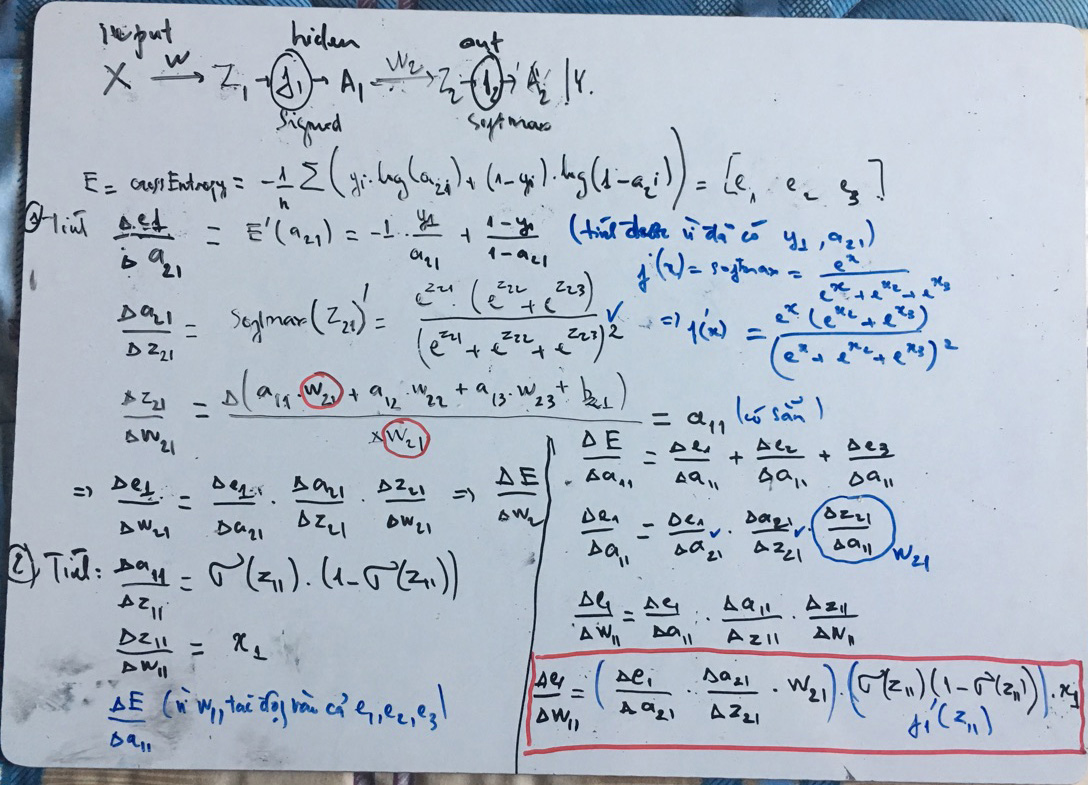 input hiden out
X —W→ Z₁ → f₁ → A₁ —W₂→ Z₂ → f₂ → A₂ | Y.
Sigmod Softmax
E = crossEntropy = -1/n Σ(yᵢ.log(a₂ᵢ) + (1-yᵢ).log(1-a₂ᵢ)) = [e₁ e₂ e₃]
1) Tính Δe1/Δa₂₁ = E'(a₂₁) = -1 · y₁/a₂₁ + (1-y₁)/(1-a₂₁) (tính được vì đã có y₁, a₂₁)
f(x) = softmax = eˣ/(eˣ + eˣ² + eˣ³)
Δa₂₁/Δz₂₁ = Softmax(Z₂₁)' = e^z₂₁ · (e^z₂₂ + e^z₂₃)/(e^z₂₁ + e^z₂₂ + e^z₂₃)² ✓
=> f'(x) = eˣ(eˣ² + eˣ³)/(eˣ + eˣ² + eˣ³)²
Δz₂₁/ΔW₂₁ = Δ(a₁₁.W₂₁ + a₁₂.W₂₂ + a₁₃.W₂₃ + b₂₁)/ΔW₂₁ = a₁₁ (có sẵn)
=> Δe1/ΔW₂₁ = Δe1/Δa₂₁ · Δa₂₁/Δz₂₁ · Δz₂₁/ΔW₂₁ => ΔE/ΔW₂
2) Tính: Δa₁₁/Δz₁₁ = σ(z₁₁).(1-σ(z₁₁))
Δz₁₁/ΔW₁₁ = x₁
ΔE/Δa₁₁ (vì W₁₁ tác động vào cả e₁,e₂,e₃)
ΔE/Δa₁₁ = Δe₁/Δa₁₁ + Δe₂/Δa₁₁ + Δe₃/Δa₁₁
Δe₁/Δa₁₁ = Δe₁/Δa₂₁ ✓ · Δa₂₁/Δz₂₁ ✓ · Δz₂₁/Δa₁₁ W₂₁
Δe₁/ΔW₁₁ = Δe₁/Δa₁₁ · Δa₁₁/Δz₁₁ · Δz₁₁/ΔW₁₁
Δe₁/ΔW₁₁ = (Δe₁/Δa₂₁ · Δa₂₁/Δz₂₁ · W₂₁).(σ(z₁₁)(1-σ(z₁₁))).x₁
f₁'(z₁₁)